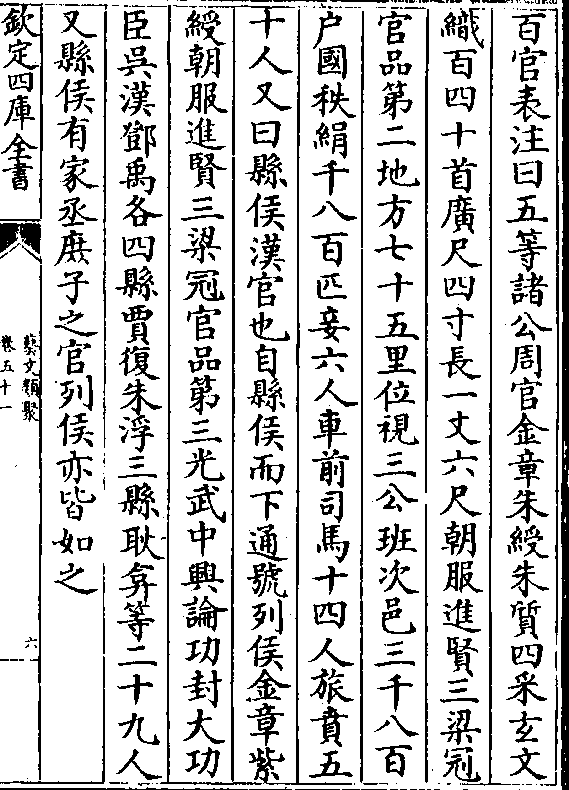 百官表注曰五等諸公周官金章朱綬朱質四采玄文
織百四十首廣尺四寸長一丈六尺朝服進賢三梁冠
官品第二地方七十五里位視三公班次邑三千八百
户國秩絹千八百匹妾六人車前司馬十四人旅賁五
十人又曰縣侯漢官也自縣侯而下通號列侯金章紫
綬朝服進賢三梁冠官品第三光武中興論功封大功
臣吳漢鄧禹各四縣賈復朱浮三縣耿弇等二十九人
又縣侯有家丞庶子之官列侯亦皆如之
欽定四庫全書
藝文類聚
卷五十一
六